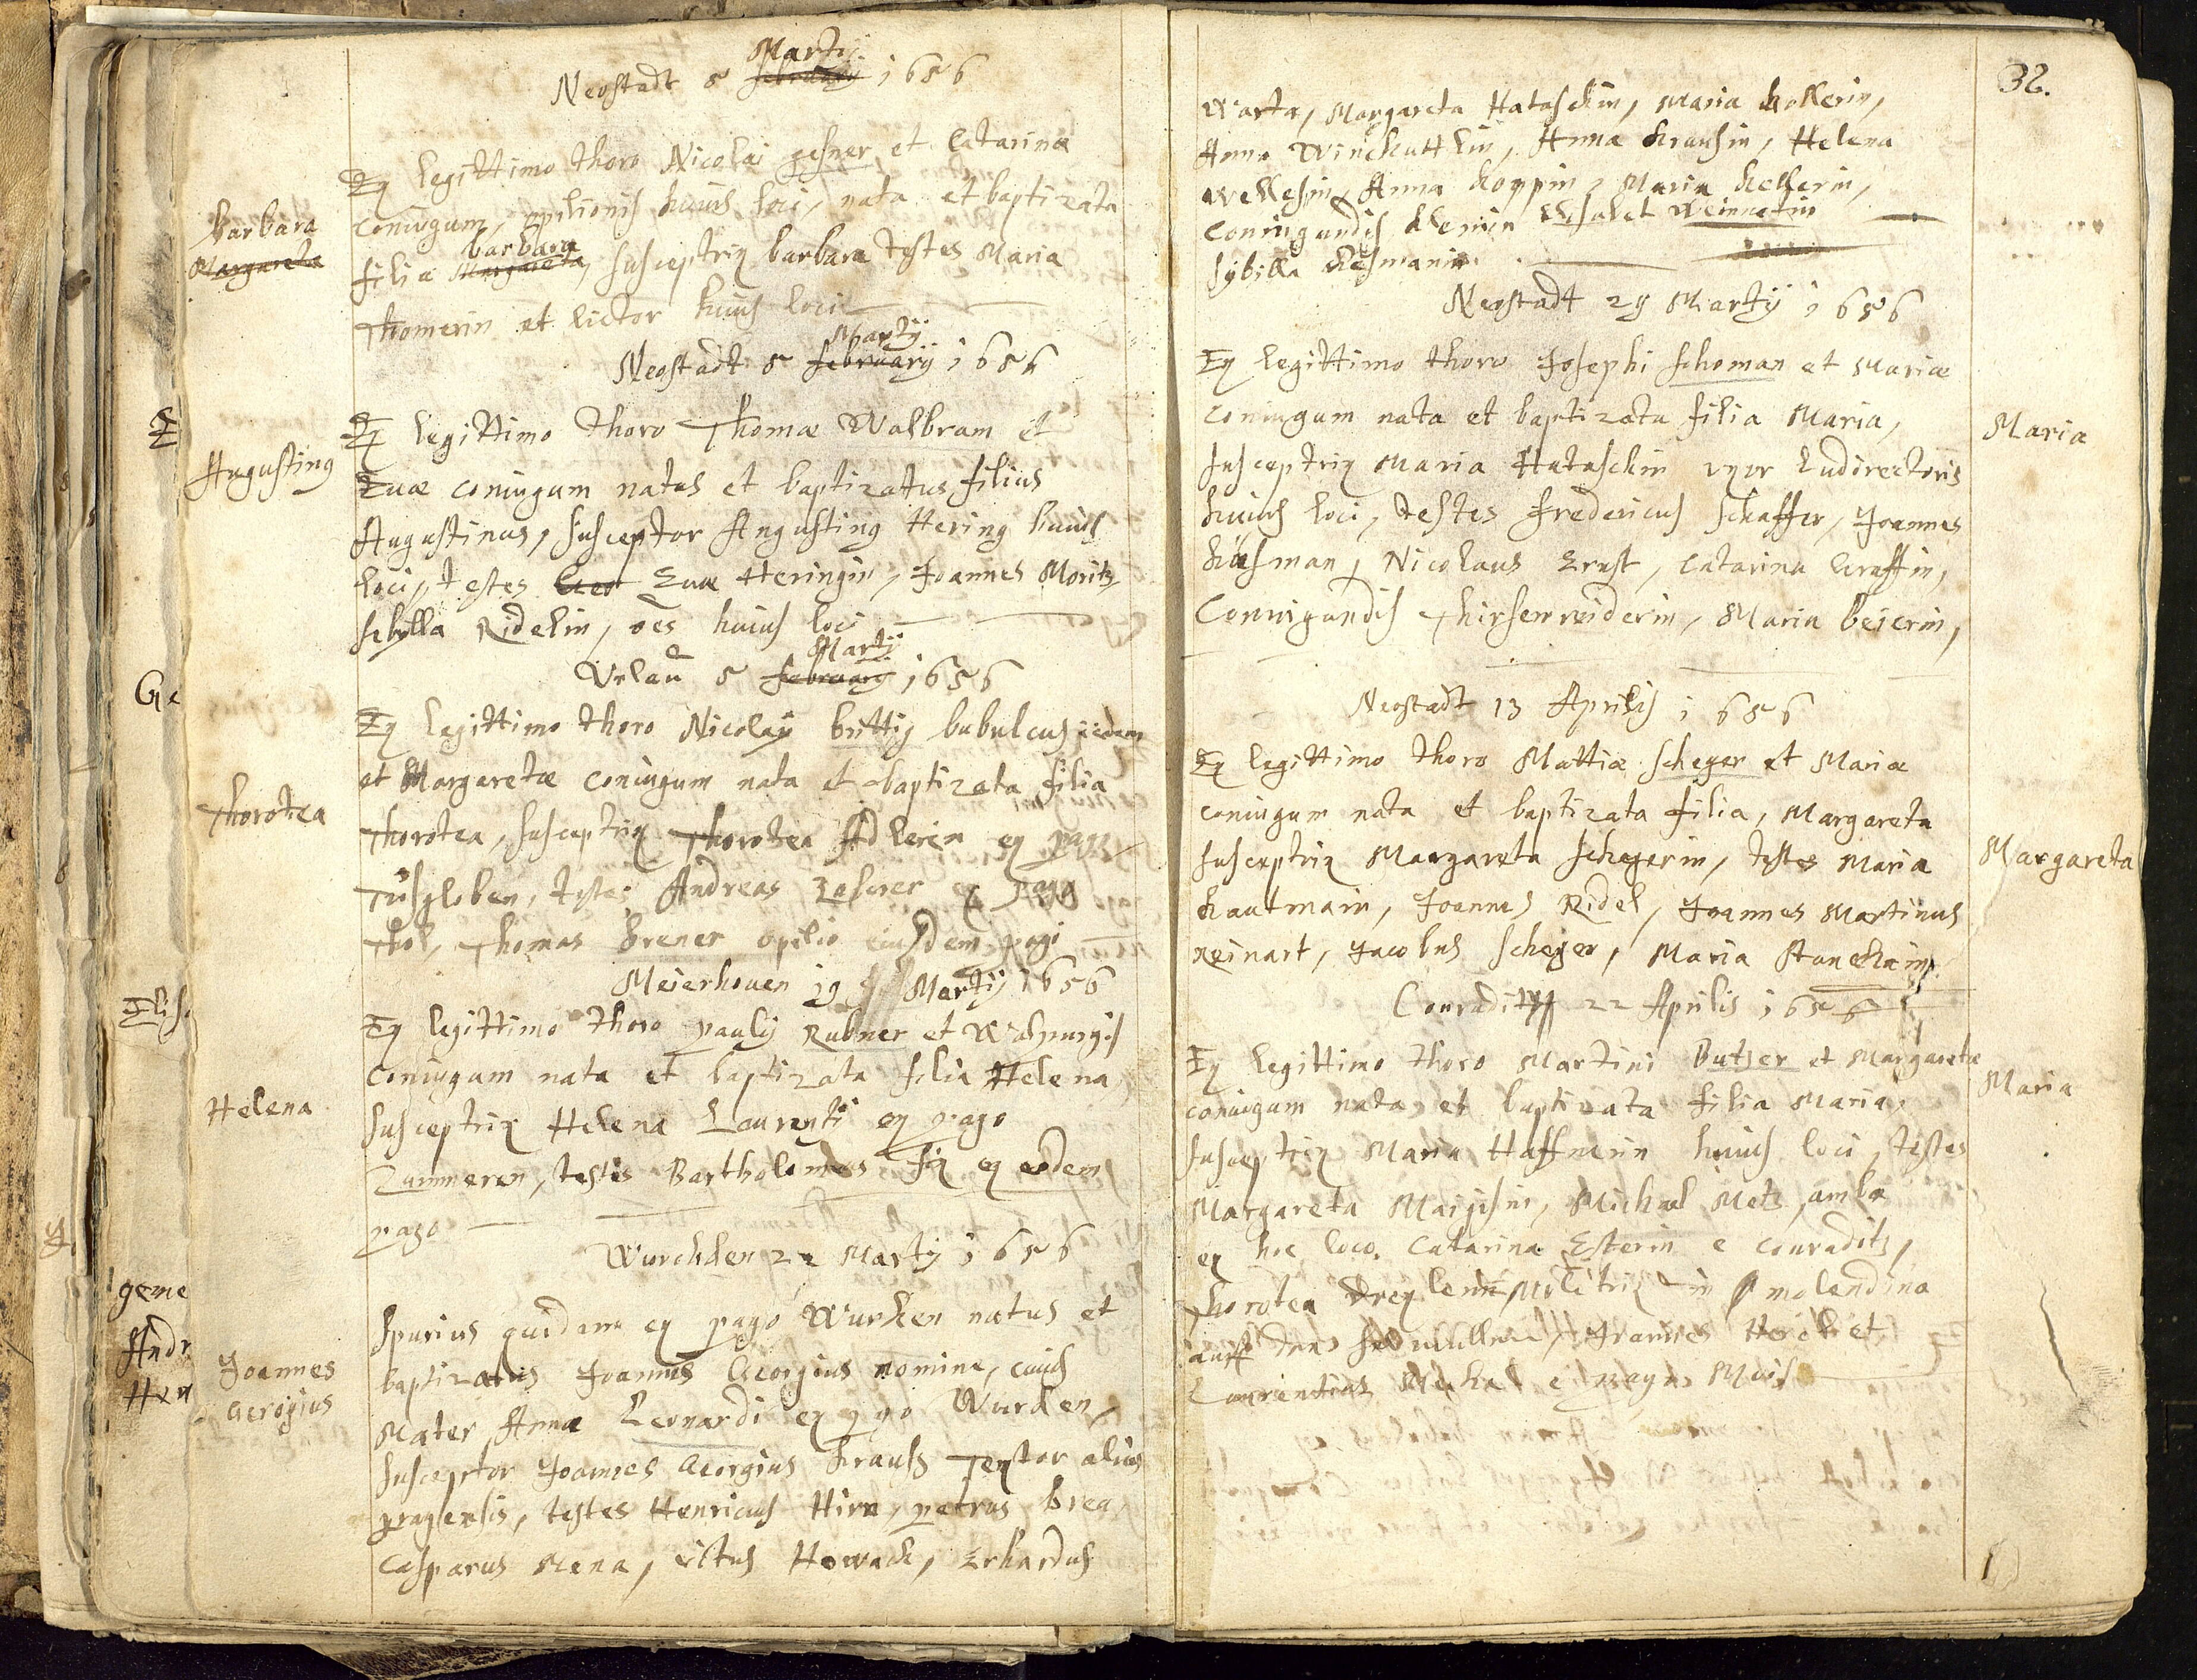 Martij
Neostadt 5 february 1656
Ex legittimo thoro Nicolai gesner et Catarinæ
coniugum, opilionis huius loci, nata et baptizata
barbara
Margareta
barbara
filia Margareta, susceptrix barbara testes Maria
Thomerin et lictor huius loci
Martij
Neostadt 5 februarij 1656
Ex legittimo thoro Thomæ Walbram et
Augustinus
Euæ coniugum natus et baptizatus filius
Augustinus, susceptor Augustinus Hering huius
loci, testes Eua Heringin, Joannes Moritz
Sibylla Ridelin, oẽs huius loci
Martij
Vrlau 5 februarij 1656
Ex legittimo thoro Nicolaij bittig bubulcus
et Margaretæ coniugum nata et baptizata filia
Thorotea
Thorotea, susceptrix Thorotea Adlerin ex pago
testes Andreas ex pago
Thol, Thomas brener opilio eiusdem pagi
Meierhouen 19 Martij 1656
Ex legittimo thoro paulij Rubner et
coniugum nata et baptizata filia Helena
Helena
susceptrix Helena Laurenti ex pago
Zummeren, testis Bartholomeus fix ex eodem
pago
Wurchken 22 Martij 1656
Spurius quidam ex pago Wurken natus et
Joannes
Georgius
baptizatus Joannes Georgius nomine, cuius
Mater Anna Leonardi ex pago Wurken,
susceptor Joannes Georgius Krauss Textor
pragensis, testes Henricus Hirn, petrus brea
Casparus Mena, vitus Howack, Erhardus
32.
Warta, Margareta Hataschin, Maria kollerin,
Anna Winckuttlin, Anna Krausin, Helena
Wellesin, Anna koppin, Maria kellerin,
Conigundis klemin Elisabet Weinnetin
Sybilla Kesmanin
Neostadt 29 Martij 1656
Ex legittimo thoro Josephi schoman et Mariæ
coniugum nata et baptizata filia Maria,
Maria
susceptrix Maria Hataschin uxor Ludirectoris
huius loci, testes Fredericus schaffer, Joannes
küsman, Nicolaus Ernst, Catarina Graffin,
Connigundis Thirsenreiderin, Maria beierin,
Neostadt 13 Aprilis 1656
Ex legittimo thoro Mattiæ scheger et Mariæ
coniugum nata et baptizata filia, Margareta
Margareta
susceptrix Margareta schegerin, testes Maria
Hautmain, Joannes Ridel, Joannes Martinus
reinart, Jacobus scheger, Maria
Conradits 22 Aprilis 1656
Ex legittimo thoro Martini Butzer et Margaretæ
Maria
coniugum nata et baptizata filia Maria,
susceptrix Maria Haffnerin huius loci, testes
Margareta Michael Metz, ambæ
ex hoc loco, Catarina Esterin e conradits,
Thorotea Drexlerin Molitrix in molendina
auff der Joannes et
Laurentius Michael e pago